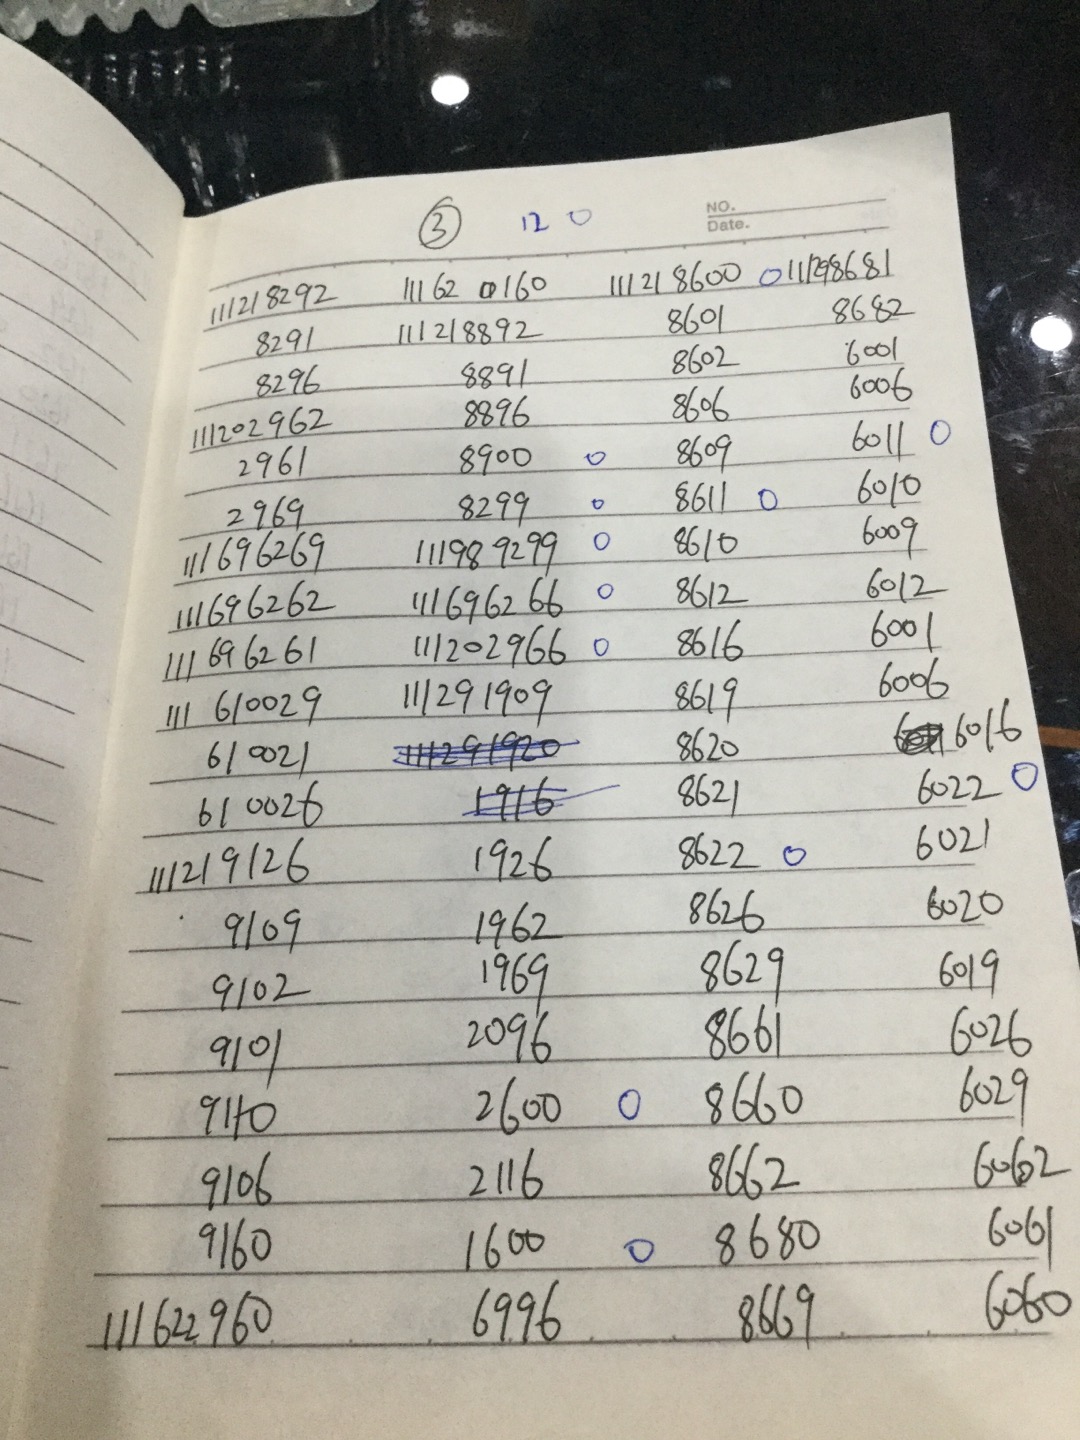 ③ 12 0
NO.
Date.
111218292 11162 0160 111218600 0 111298681
8291 111218892 8601 8682
8296 8891 8602 6001
111202962 8896 8606 6006
2961 8900 0 8609 6011 0
2969 8299 0 8611 0 6010
111696269 111989299 0 8610 6009
111696262 111696266 0 8612 6012
111696261 111202966 0 8616 6001
111610029 111291909 8619 6006
610021 111291920 8620 6016
610026 1916 8621 6022 0
111219126 1926 8622 0 6021
9109 1962 8626 6020
9102 1969 8629 6019
9101 2096 8661 6026
9110 2600 0 8660 6029
9106 2116 8662 6062
9160 1600 0 8680 6061
111622960 6996 8669 6060